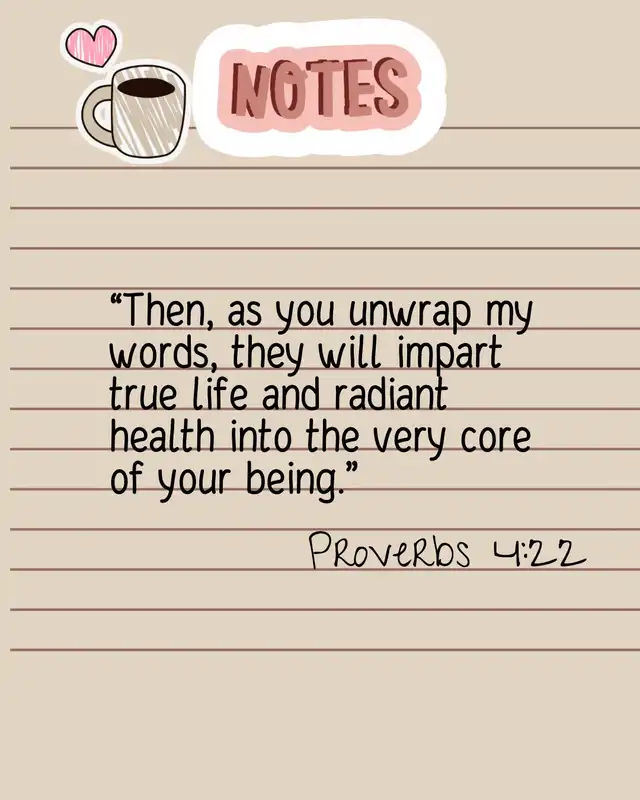 NOTES
“Then, as you unwrap my
words, they will impart
true life and radiant
health into the very core
of your being.”
Proverbs 4:22